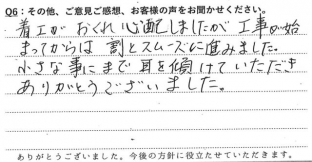 Q6：その他、ご意見ご感想、お客様の声をお聞かせください。
着工が おくれ 心配しましたが 工事の始
まってからは 割とスムーズに進みました。
小さな事にまで 耳を傾けていただき
ありがとうございました。
ありがとうございました。今後の方針に役立たせていただきます。